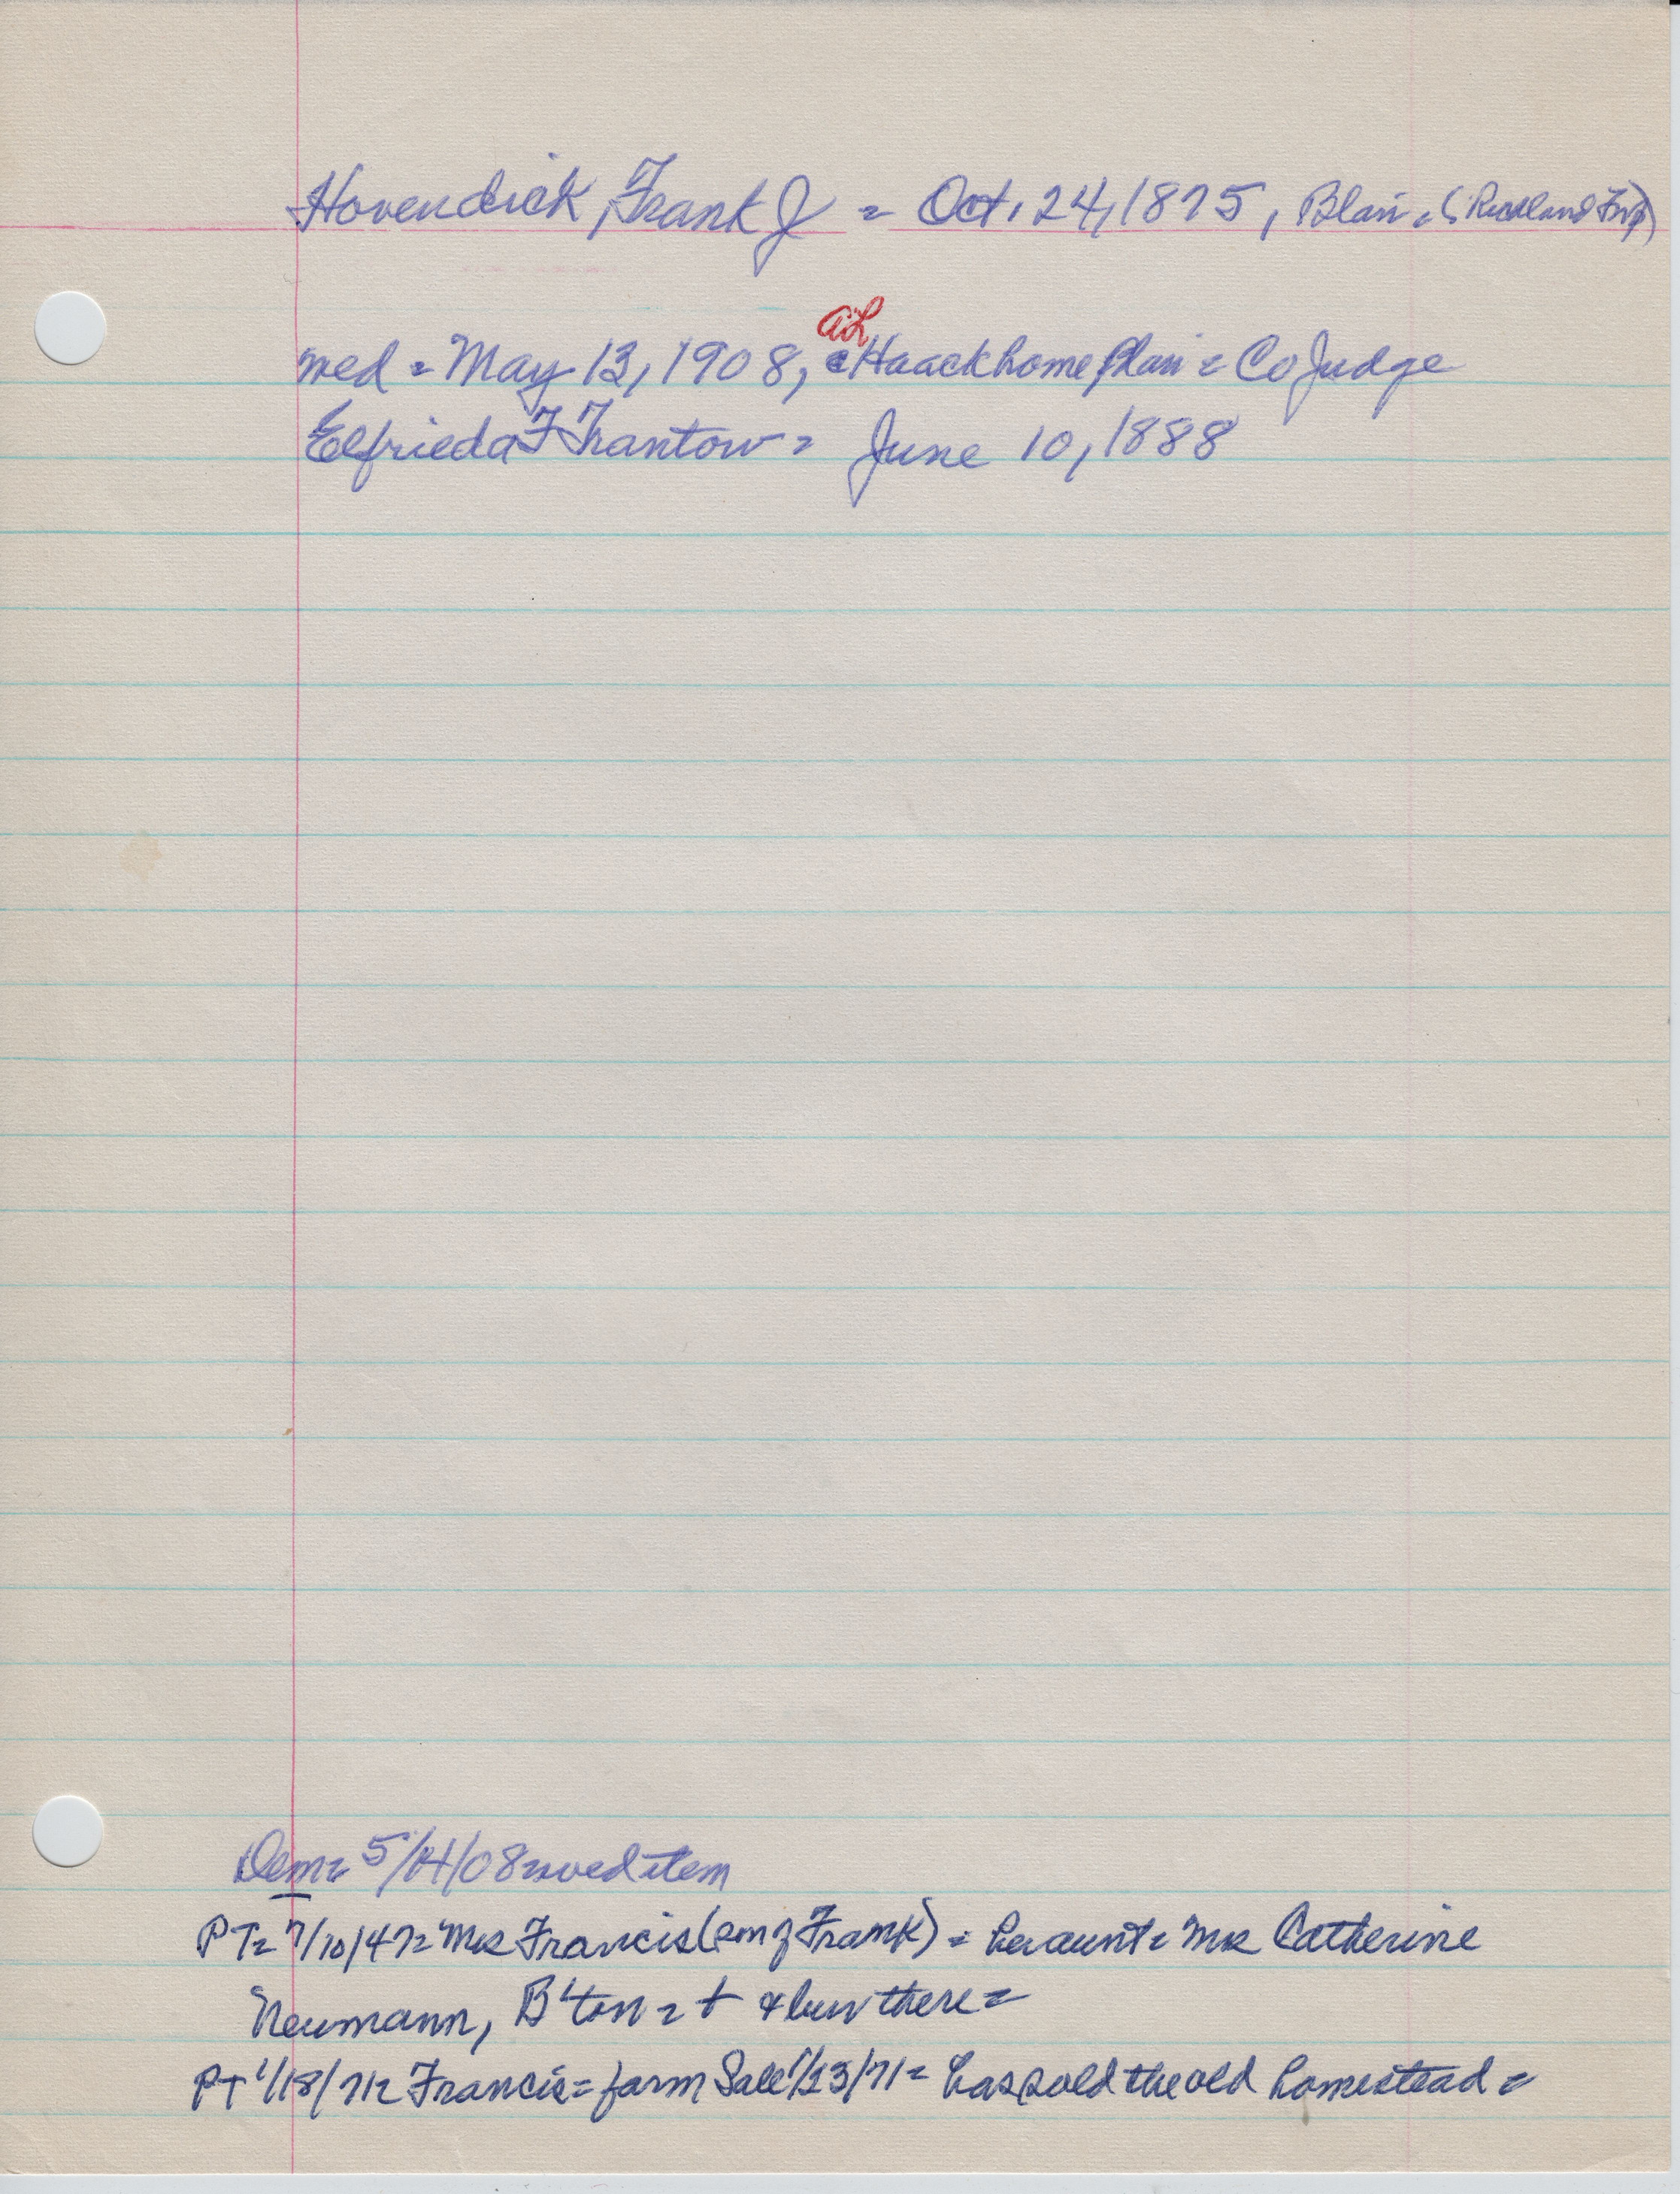 Hovendick, Frank J = Oct. 24, 1875, Blair = (Richland Twp)
at
wed = May 13, 1908, Haack home Blair = Co Judge
Elfrieda F Frantow = June 10, 1888
Dem = 5/14/08 = wed item
PT = 7/10/47 = Mrs Francis (son of Frank) = her aunt = Mrs Catherine
Neumann, B'ton = † & bur there =
PT 1/18/71 = Francis = farm Sale 1/23/71 = has sold the old homestead =